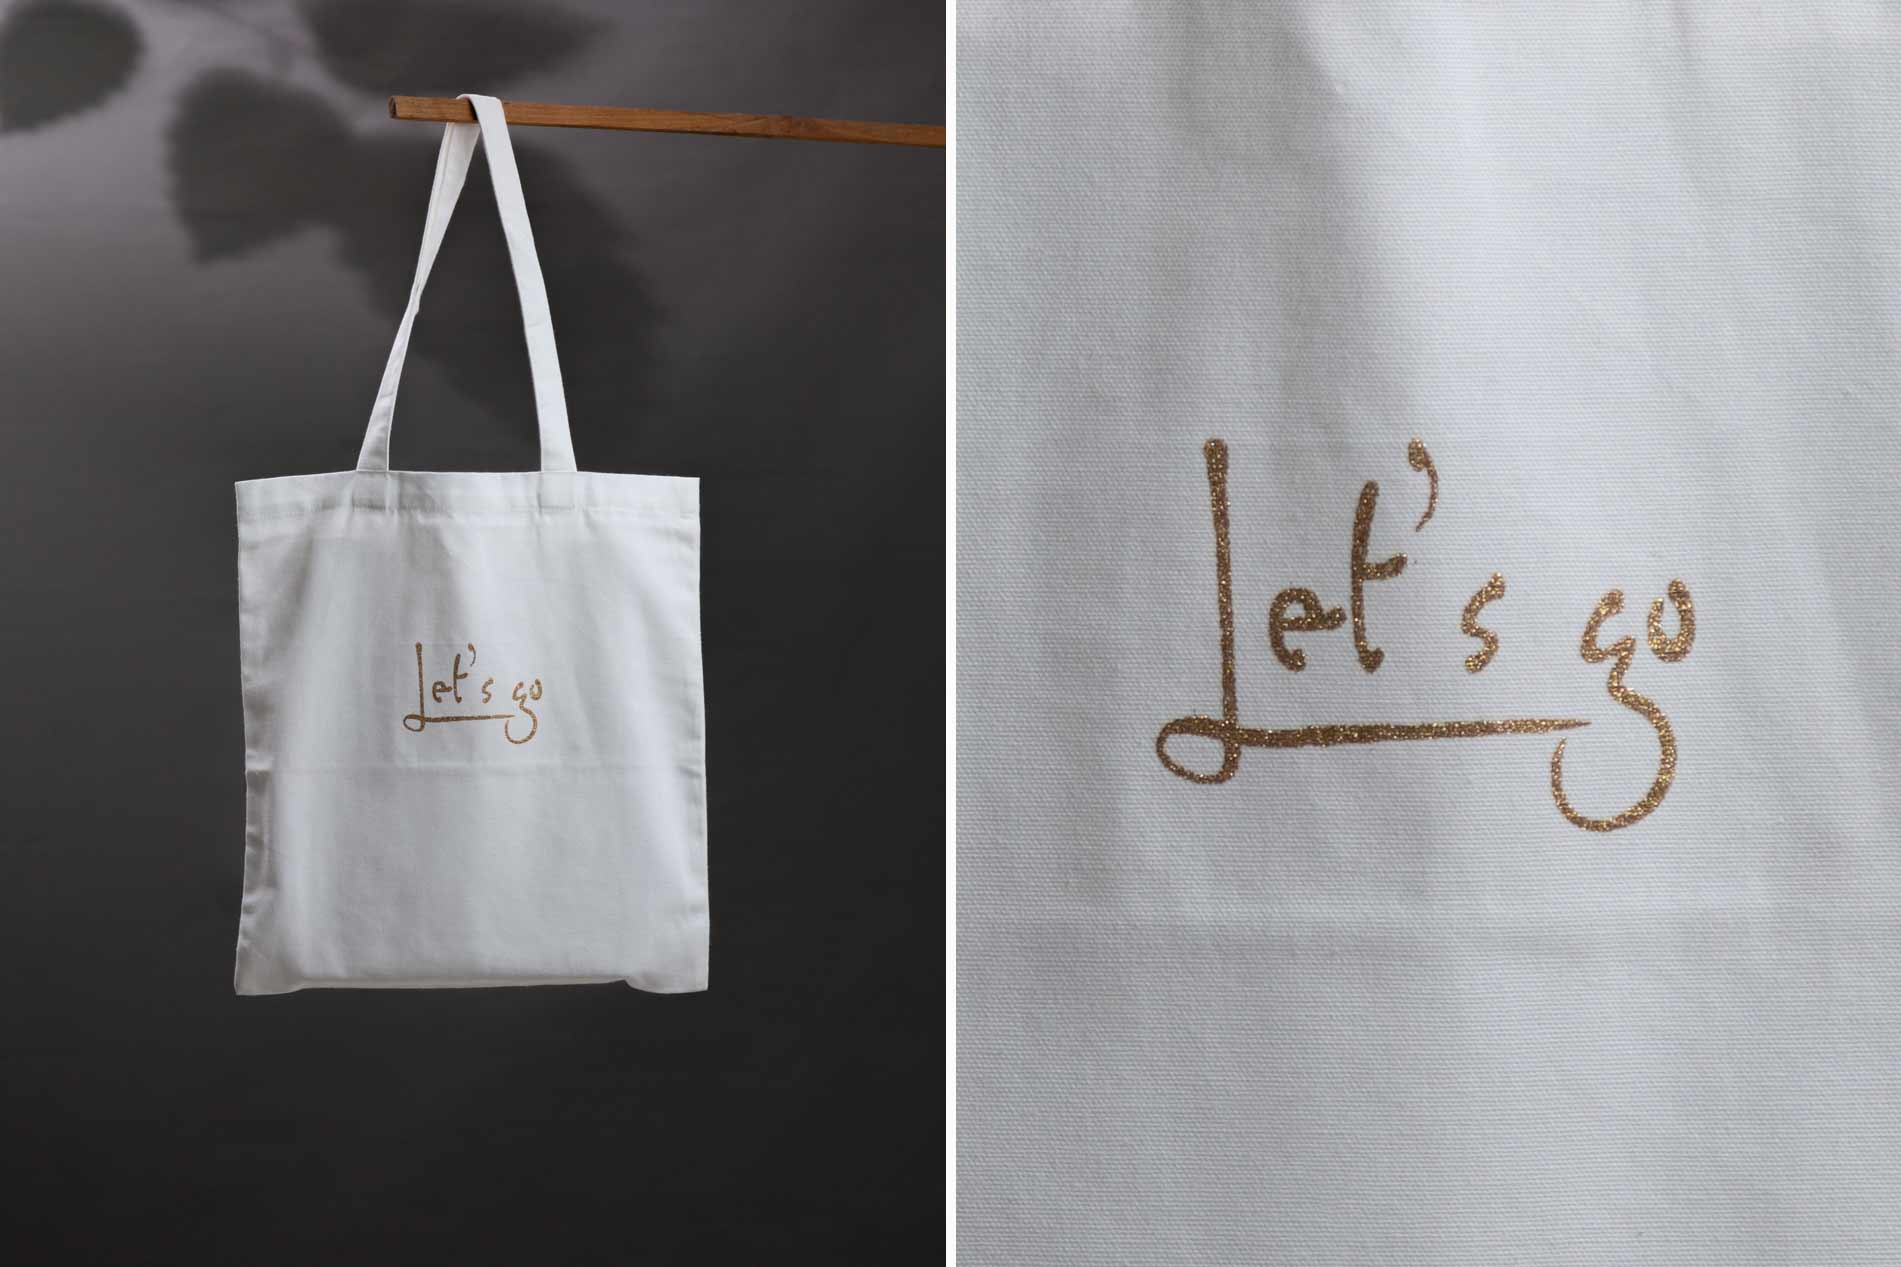 Let's go
Let's go